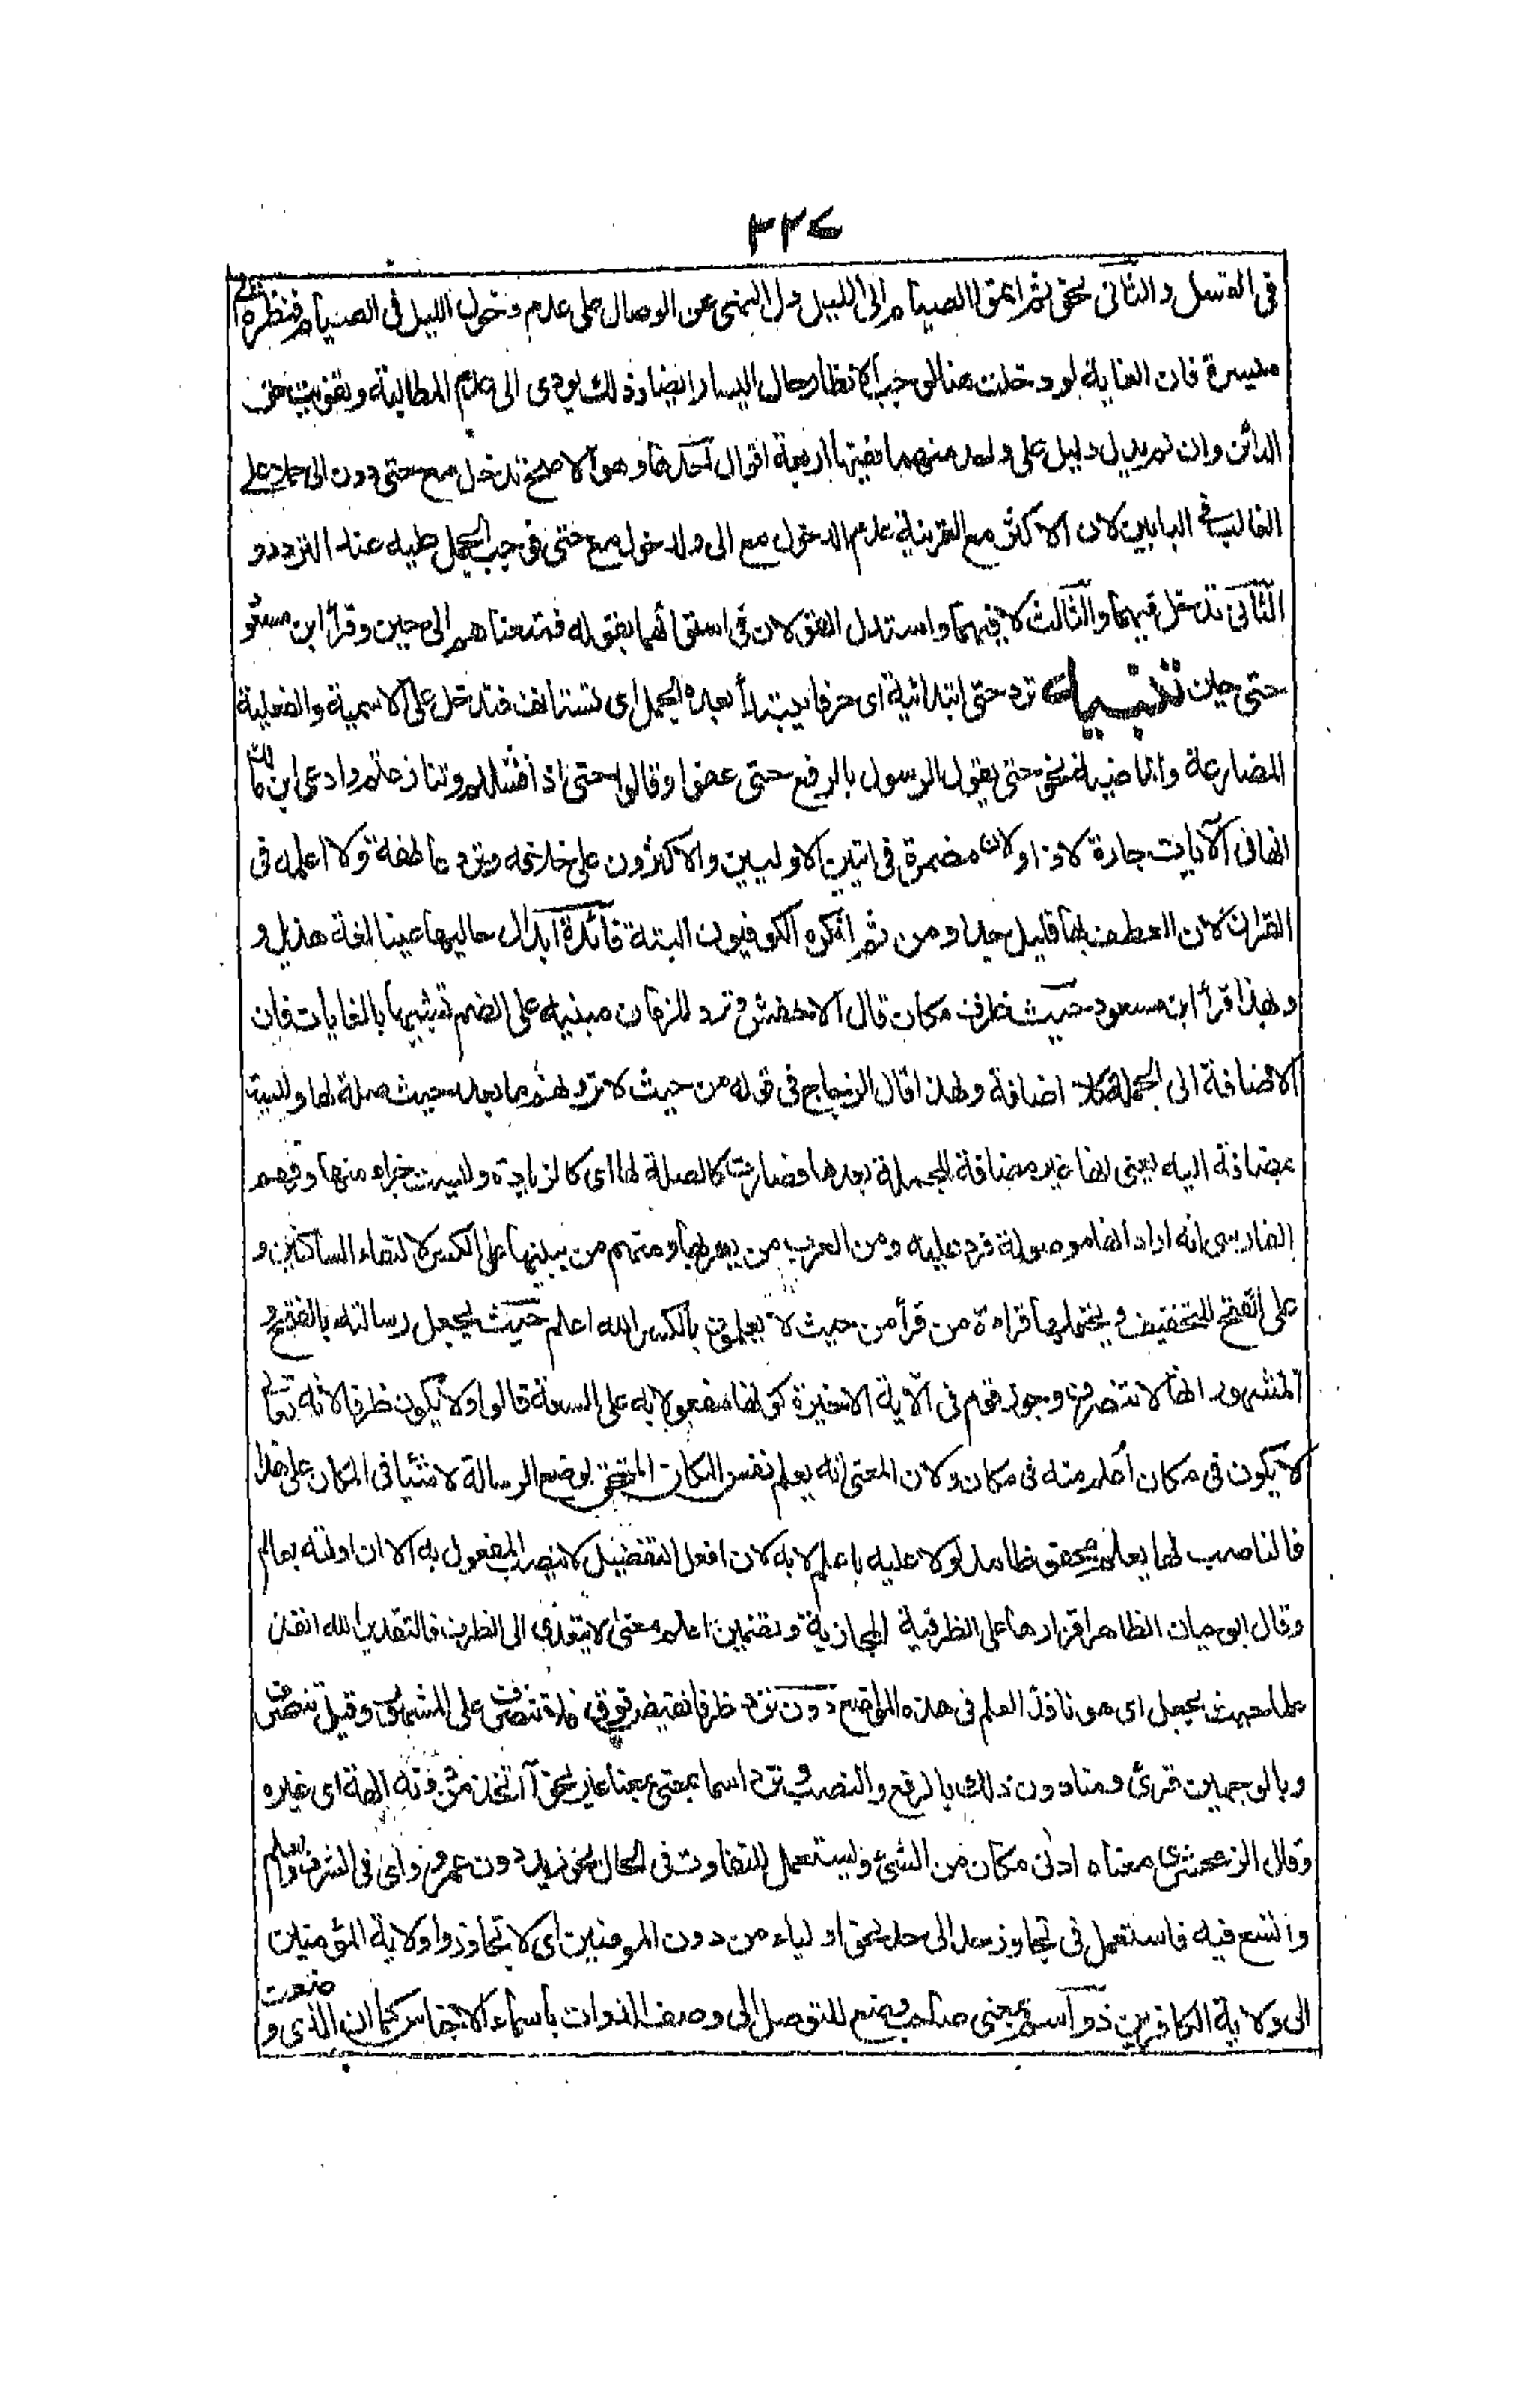 ٣٢٧
فى الغسل والثانى نحو ثم اتموا الصيام الى الليل دل النهى عن الوصال على عدم دخول الليل فى الصيام فنظرة الى
ميسرة فان الغاية لو دخلت هنا لوجب الانظار حال اليسار ايضا وذلك يودى الى عدم المطالبة وتفويت حق
الدائن وان لم يدل دليل على واحد منهما ففيها اربعة اقوال احدها وهو الاصح تدخل مع حتى دون الى حملا على
الغالب فى البابين لان الاكثر مع القرينة عدم الدخول مع الى والدخول مع حتى فوجب الحمل عليه عند التردد و
الثانى تدخل فيهما والثالث لا فيهما واستدل القولان فى استوائهما بقوله فمتعناهم الى حين وقرأ ابن مسعو
حتى حين تنبيه ترد حتى ابتدائية اى حرفا يبتدأ بعده الجمل اى تستانف فتدخل على الاسمية والفعلية
المضارعة والماضية نحو حتى يقول الرسول بالرفع حتى عفوا وقالوا حتى اذا فشلتم وتنازعتم وادعى ابن مالك
انها فى الآيات جارة لاذا ولان مضمرة فى اتيين الاوليين والاكثرون على خلافه وترد عاطفة ولا اعلمه فى
القران لان العطف بها قليل جدا ومن ثم انكره الكوفيون البتة فائدة ابدال حائها عينا لغة هذيل و
وبهذا قرأ ابن مسعود حيث ظرف مكان قال الاخفش وترد للزمان مبنية على الضم تشبيها بالغايات فان
الاضافة الى الجملة كلا اضافة ولهذا قال الزجاج فى قوله من حيث لا ترونهم ما بعد حيث صلة لها وليست
بمضافة اليه يعنى انها غير مضافة للجملة بعدها فصارت كالصلة لها اى كالزيادة وليست جزاء منها وفهم
الفارسى انه اراد انها موصولة فرد عليه ومن العرب من يعربها ومنهم من يبنيها على الكسر لالتقاء الساكنين و
على الفتح للتخفيف ويحتملها قراءة من قرأ من حيث لا يعلمون بالكسر الله اعلم حيث يجعل رسالته بالفتح و
المشهور انها لا تتصرف وجوز قوم فى الآية الاخيرة كونها مفعولا به على السعة قالوا ولا يكون ظرفا لانه تعالى
لا يكون فى مكان اعلم منه فى مكان ولان المعنى انه يعلم نفس المكان المستحق لوضع الرسالة لا شئيا فى المكان على هذا
فالناصب لها يعلم محذوفا مدلولا عليه باعلم لا به لان افعل التفضيل لا ينصب المفعول به الا ان اولته بعالم
وقال ابو حيان الظاهر اقرارها على الظرفية المجازية وتضمين اعلم معنى لا يتعدى الى الظرف فالتقدير الله انفذ
علما حيث يجعل اى هو نافذ العلم فى هذه المواضع دون ترد ظرفا نقيض فوق فلا تتصرف على المشهور وقيل تتصرف
وبالوجهين قرئ ومنا دون ذلك بالرفع والنصب وترد اسما بمعنى غير نحو آاتخذ من دونه الهة اى غيره
وقال الزمحشرى معناه ادنى مكان من الشئ وليستعمل للتفاوت فى الحال نحو زيد دون عمرو اى فى الشرف والعلم
واتسع فيه فاستعمل فى تجاوز حد الى حد نحو اولياء من دون المومنين اى لا تتجاوزوا ولاية المؤمنين
الى ولاية الكافرين ذو آسم بمعنى صاحب وضع للتوصل الى وصف الذوات باسماء الاجناس كما ان الذى و
ضعت